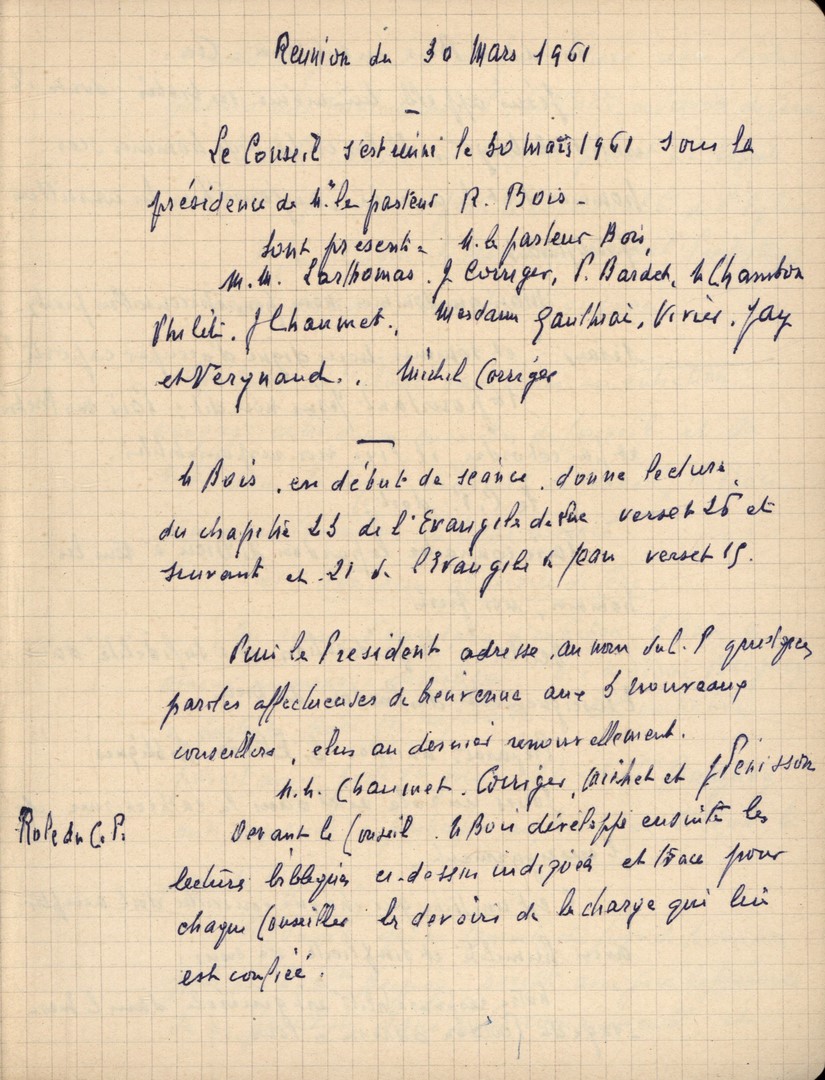 Reunion du 30 Mars 1961
Le Conseil s'est réuni le 30 mars 1961 sous la
présidence de M. le pasteur R. Bois.
Sont présents M. le pasteur Bois,
M.M. Larthomas. J Corriger, P. Bardet, M Chambon
J Chaumet., Mesdames Vivier. Jay
et Vergnaud.. Michel Corriger
M Bois, en début de séance, donne lecture,
du chapitre 23 de l'Evangile de verset 26 et
suivant et 21 de l'Evangile de Jean verset 15.
Puis le President adresse, au nom du C. P quelques
paroles affectueuses de bienvenue aux 3 nouveaux
conseillers, elus au dernier renouvellement.
M.M. Chaumet. Corriger, Michel et J Pénisson
Role du C.P.
Devant le Conseil. M Bois développe ensuite les
lectures bibliques ci-dessus indiquées et trace pour
chaque Conseiller les devoirs de la charge qui lui
est confiée.